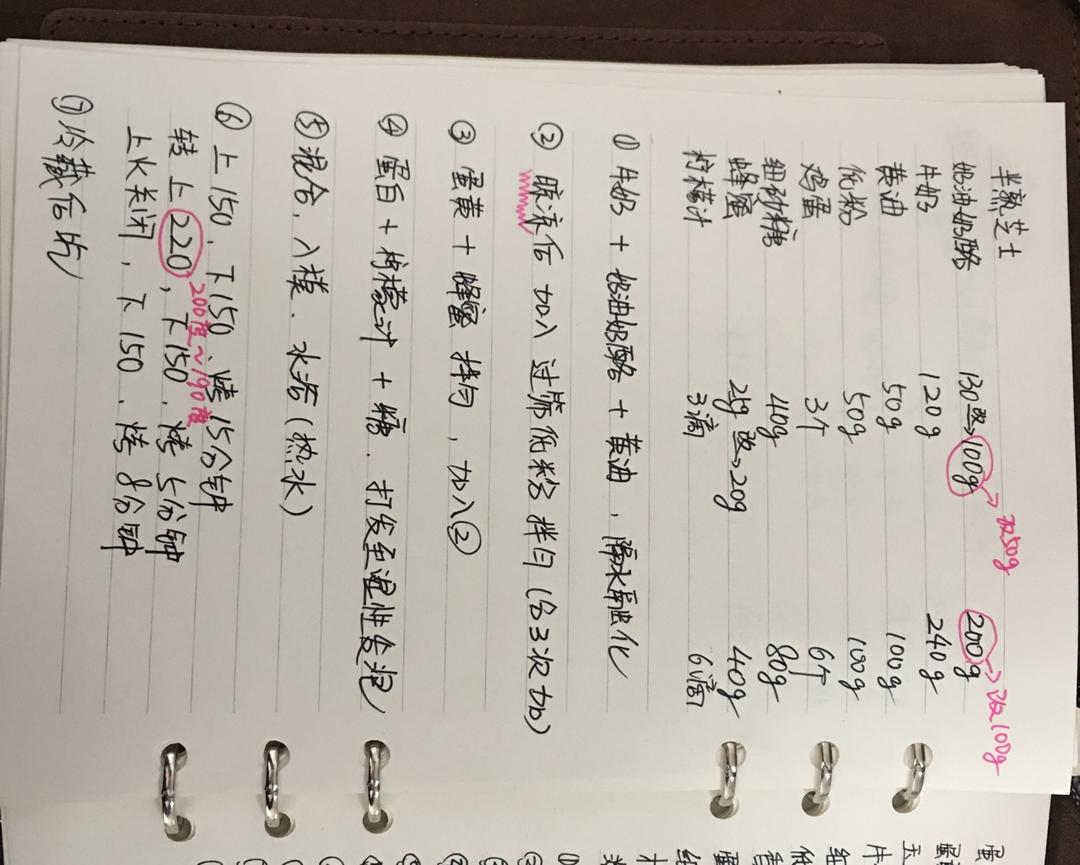 半熟芝士
奶油奶酪 130改→100g→改50g 200g→改100g
牛奶 120g 240g
黄油 50g 100g
低粉 50g 100g
鸡蛋 3个 6个
细砂糖 40g 80g
蜂蜜 25g 改→20g 40g
柠檬汁 3滴 6滴
① 牛奶 + 奶油奶酪 + 黄油，隔水融化
② 晾凉后 加入 过筛低粉 拌匀 (分3次加)
③ 蛋黄 + 蜂蜜 拌匀，加入②
④ 蛋白 + 柠檬汁 + 糖．打发至湿性发泡
⑤混合，入模．水浴（热水）
⑥ 上150．下150．烤15分钟
转上220，下150．烤5分钟
200度~190度
上火关闭，下150．烤8分钟
⑦冷藏后吃